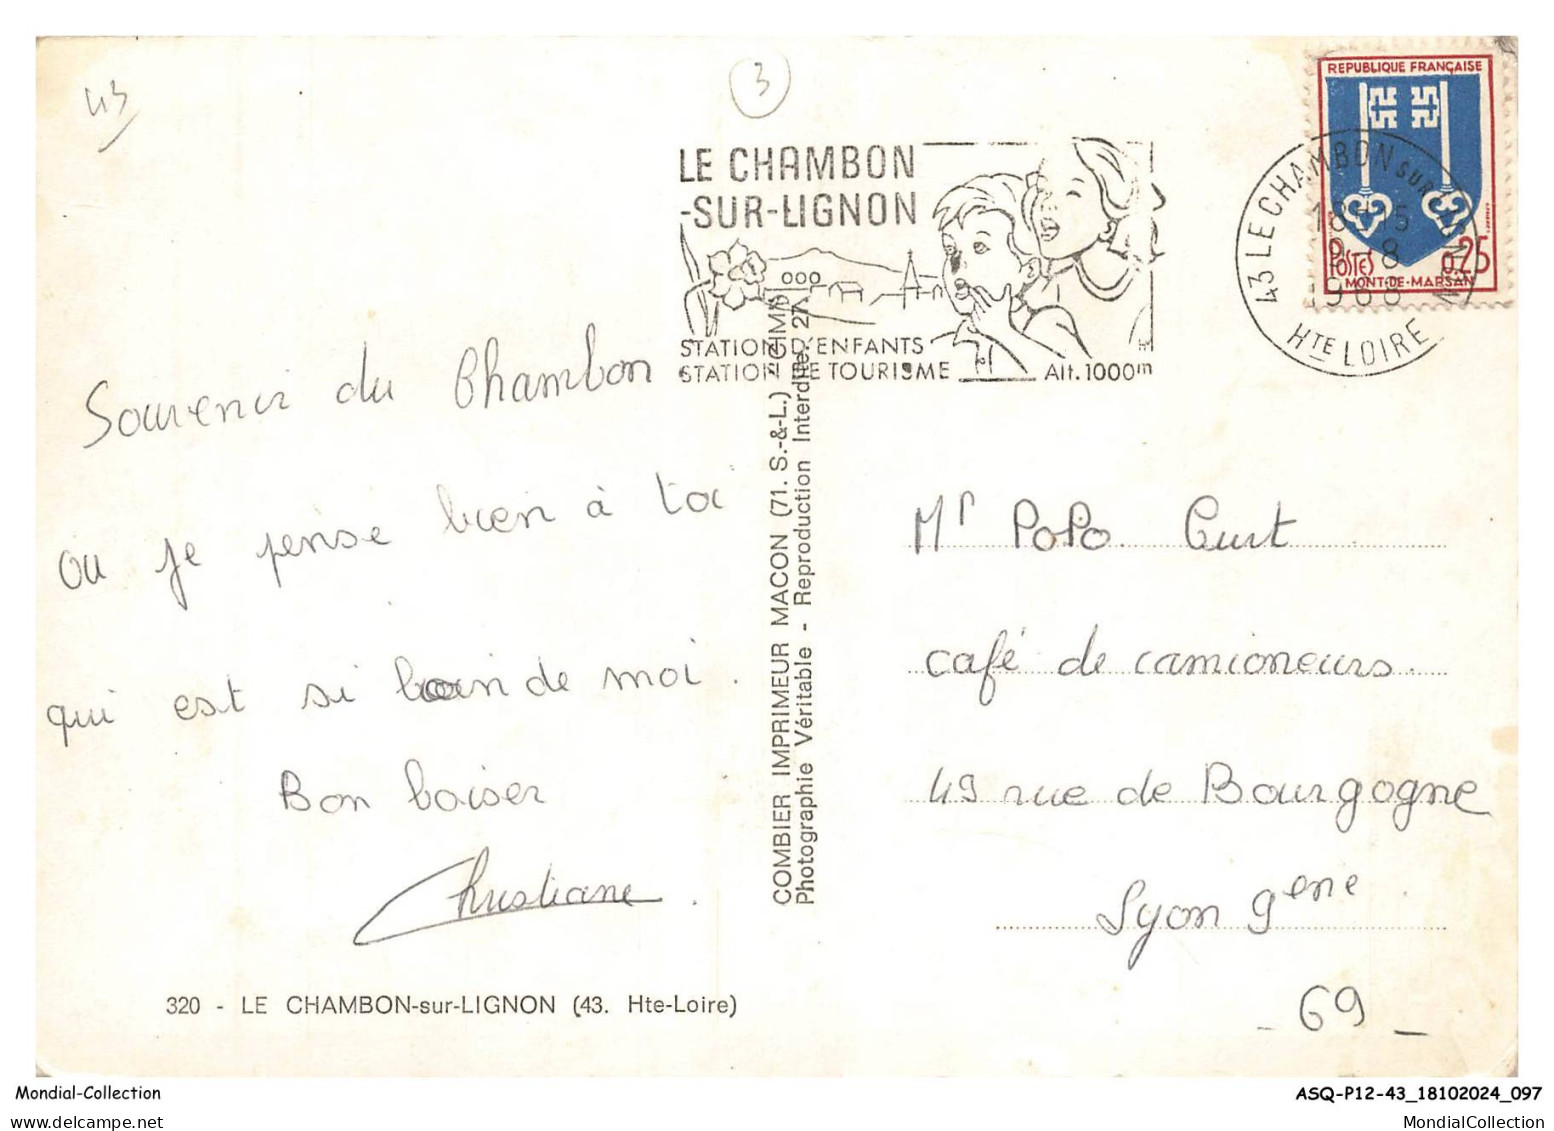 43
3
LE CHAMBON
-SUR-LIGNON
STATION D'ENFANTS
STATION DE TOURISME
Alt. 1000m
REPUBLIQUE FRANÇAISE
POSTES 0,25
MONT-DE-MARSAN
43 LE CHAMBON SUR LIGNON
18H15
8
1968
HTE LOIRE
Souvenir du Chambon .
ou je pense bien à toi
qui est si loin de moi .
Bon baiser
Christiane .
COMBIER IMPRIMEUR MACON (71. S.-&-L.) "CIM"
Photographie Véritable - Reproduction Interdite.
Mr POPO Curt
café de camioneurs.
49 rue de Bourgogne
Lyon 9eme .
- 69 -
320 - LE CHAMBON-sur-LIGNON (43. Hte-Loire)
Mondial-Collection
ASQ-P12-43_18102024_097
delcampe.net
MondialCollection